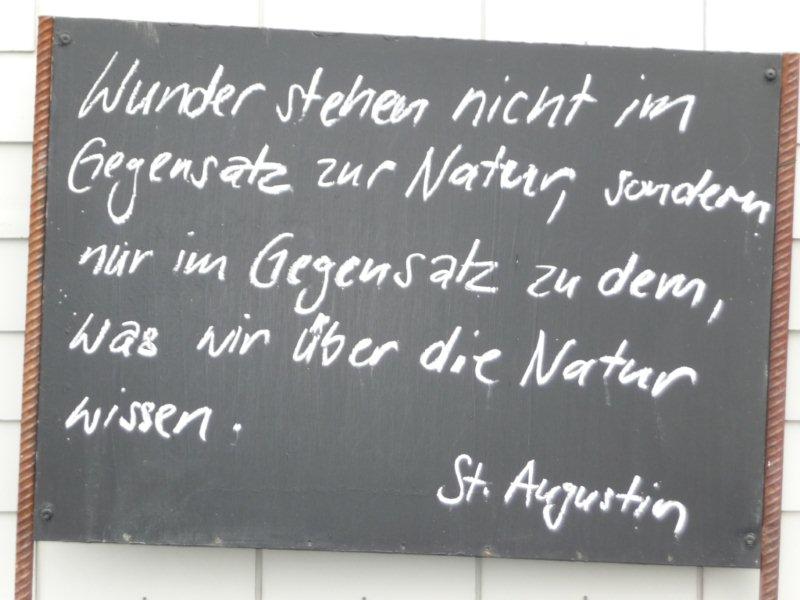 Wunder stehen nicht im
Gegensatz zur Natur, sondern
nur im Gegensatz zu dem,
was wir über die Natur
wissen.
St. Augustin